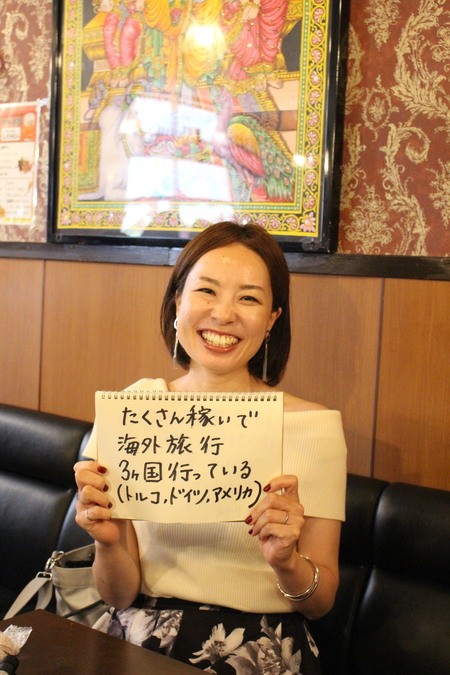 たくさん稼いで
海外旅行
3ヶ国行っている
(トルコ,ドイツ,アメリカ)